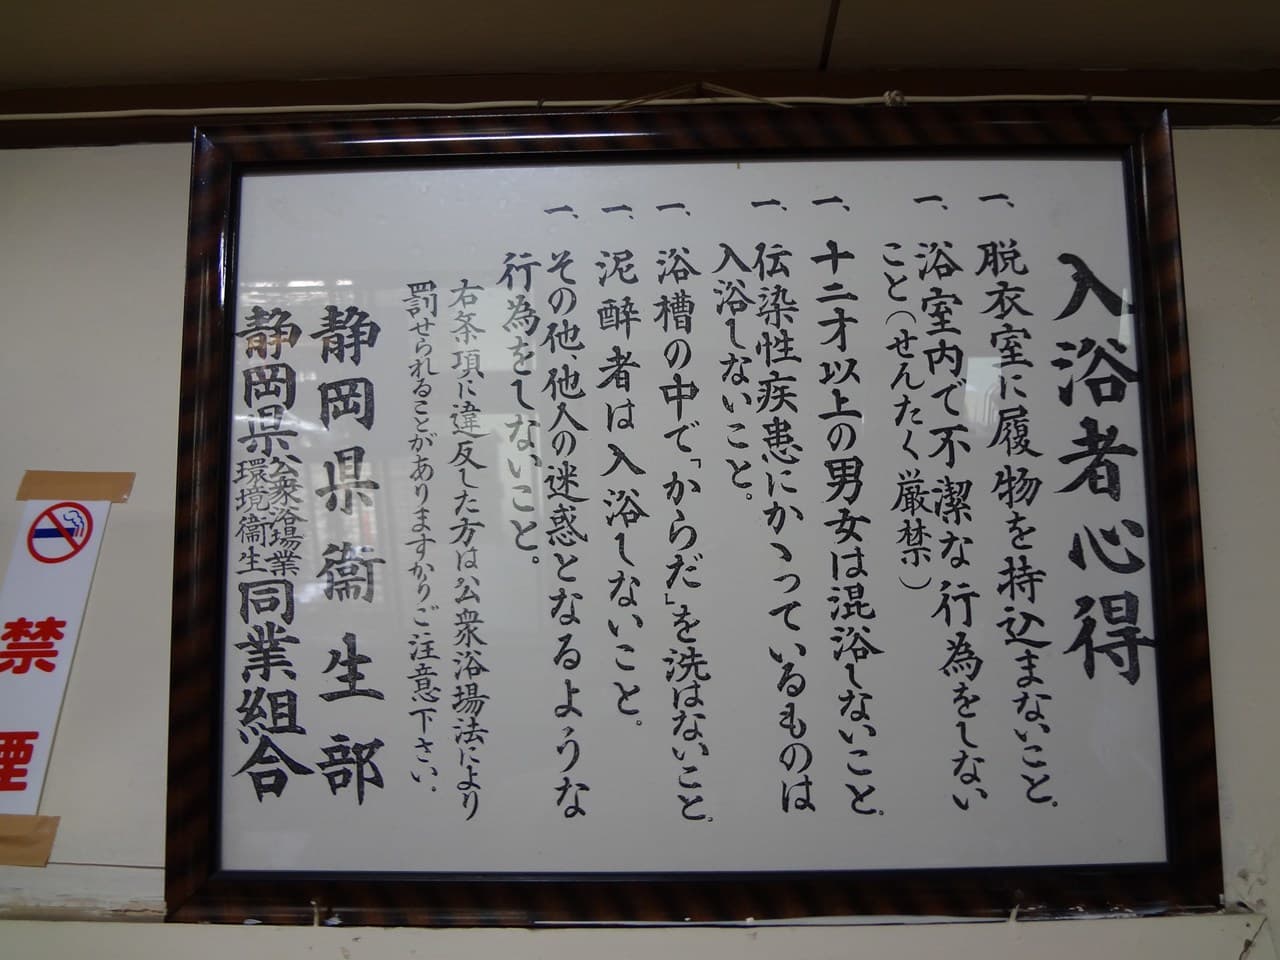 入浴者心得
一、脱衣室に履物を持込まないこと。
一、浴室内で不潔な行為をしない
こと(せんたく厳禁)
一、十二才以上の男女は混浴しないこと。
一、伝染性疾患にかゝっているものは
入浴しないこと。
一、浴槽の中で「からだ」を洗はないこと。
一、泥酔者は入浴しないこと。
一、その他、他人の迷惑となるような
行為をしないこと。
右条項に違反した方は公衆浴場法により
罰せられることがありますからご注意下さい。
静岡県衞生部
静岡県公衆浴場業環境衞生同業組合
禁煙